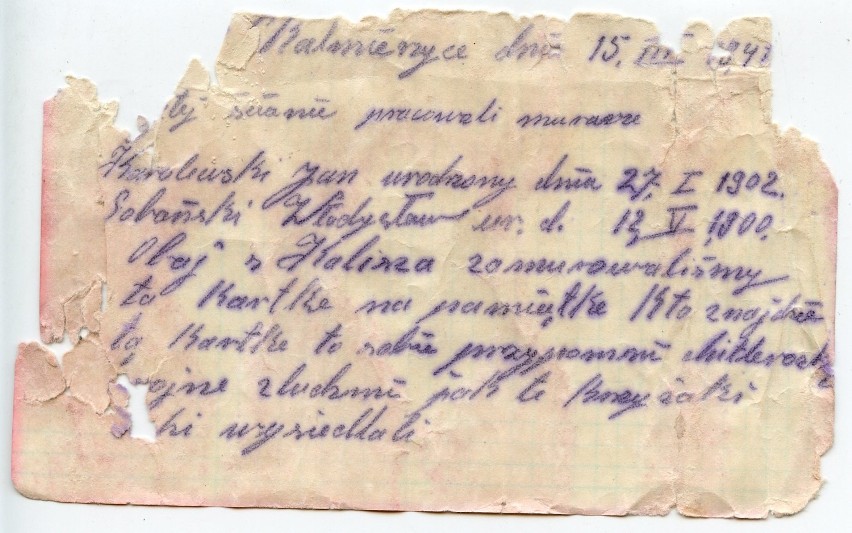 Kalmierzyce dnia 15. III 1941
tej ścianie pracowali murarze
Karolewski Jan urodzony dnia 27. I 1902.
Sobański Władysław ur. d. 12 V 1900.
Obaj s Kalisza zamurowaliśmy
tą Kartke na pamiątke Kto znajdzie
tą Kartke to sobie przypomni chitlerozką
wojne zluchmi jak te krzyżaki
wysiedlali